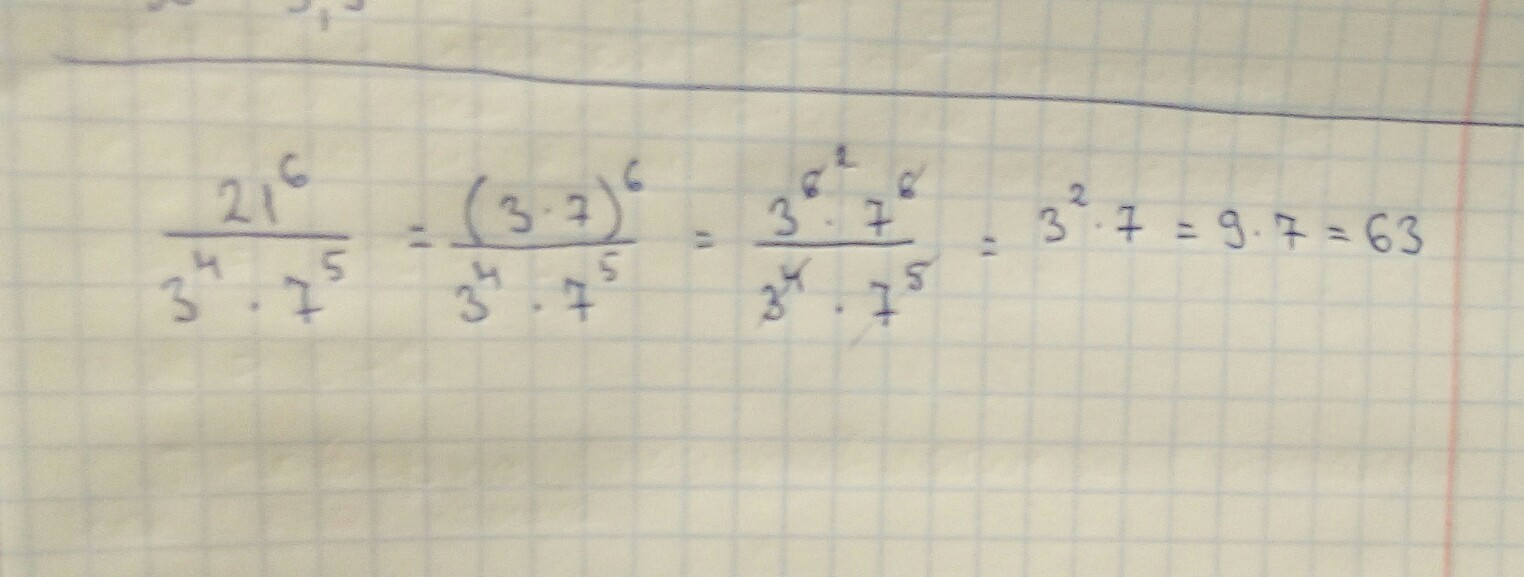 21⁶ / 3⁴ · 7⁵ = (3 · 7)⁶ / 3⁴ · 7⁵ = 3⁶ ² · 7⁶ / 3⁴ · 7⁵ = 3² · 7 = 9 · 7 = 63